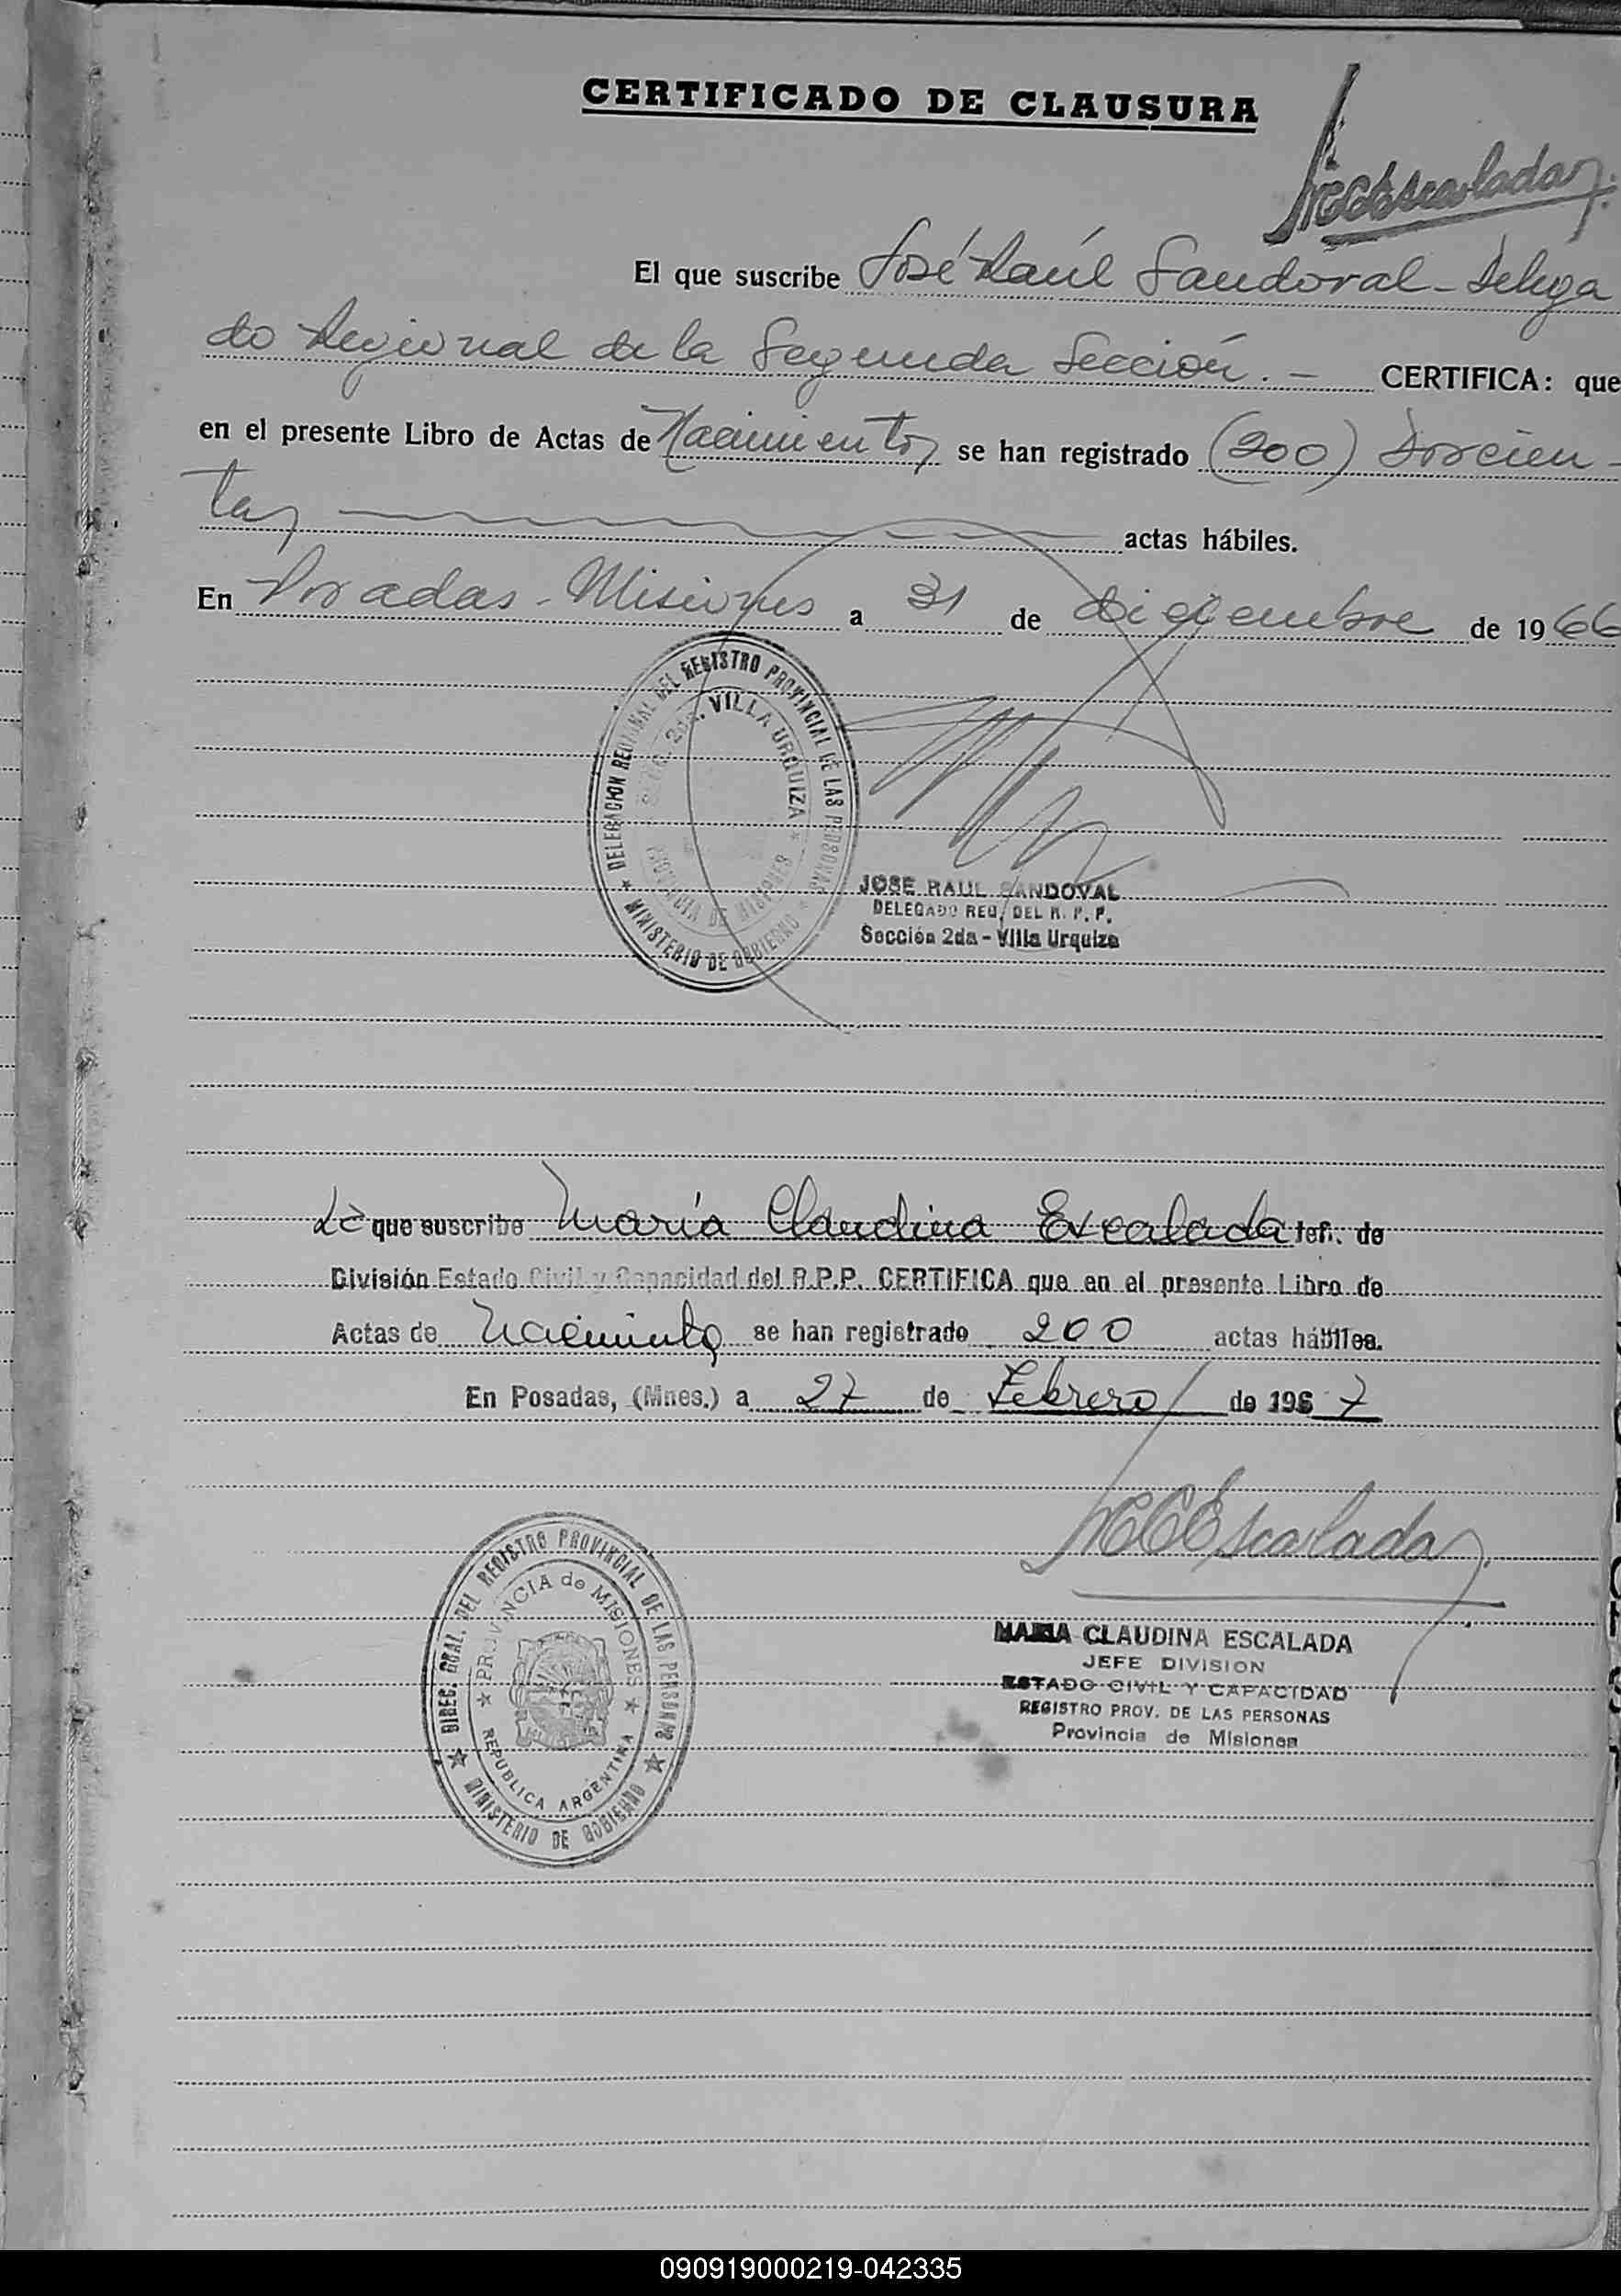 CERTIFICADO DE CLAUSURA
MCEscalada
El que suscribe José Raúl Sandoval - Delega
do Regional de la Segunda Sección. - CERTIFICA: que
en el presente Libro de Actas de Nacimientos se han registrado (200) Doscien-
tas actas hábiles.
En Posadas - Misiones a 31 de diciembre de 1966
DELEGACION REGIONAL DEL REGISTRO PROVINCIAL DE LAS PERSONAS
SECC. 2da. VILLA URQUIZA
PROVINCIA DE MISIONES
MINISTERIO DE GOBIERNO
JOSE RAUL SANDOVAL
DELEGADO REG. DEL R. P. P.
Sección 2da - Villa Urquiza
La que suscribe María Claudina Escalada Jefe. de
División Estado Civil y Capacidad del R.P.P. CERTIFICA que en el presente Libro de
Actas de Nacimiento se han registrado 200 actas hábiles.
En Posadas, (Mnes.) a 27 de Febrero de 1967
MCEscalada
DIREC. GRAL. DEL REGISTRO PROVINCIAL DE LAS PERSONAS
PROVINCIA de MISIONES
REPUBLICA ARGENTINA
MINISTERIO DE GOBIERNO
MARIA CLAUDINA ESCALADA
JEFE DIVISION
ESTADO CIVIL Y CAPACIDAD
REGISTRO PROV. DE LAS PERSONAS
Provincia de Misiones
090919000219-042335